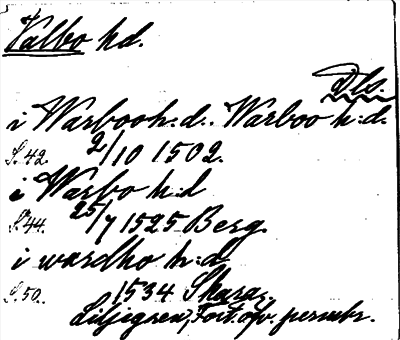 Valbo hd.
Dls.
i Warbooh:d. Warboo h:d.
S. 42. 2/10 1502.
i Warbo h:d
S. 44. 25/7 1525 Berg.
i wardho h:d
S. 50. 1534 Skara,
Liljegren, Fört. öfv. permbr.